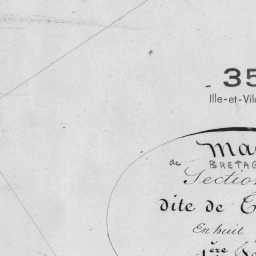 35
Ille-et-Vil
Ma
de BRETAG
Section
dite de
En huit